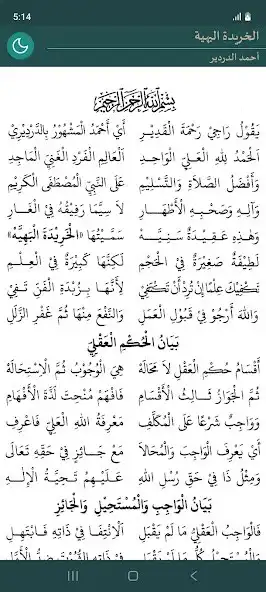 5:14
الخريدة البهية
أحمد الدردير
بِسْمِ اللَّهِ الرَّحْمَنِ الرَّحِيمِ
يَقُولُ رَاجِي رَحْمَةِ الْقَدِيرِ أَيْ أَحْمَدُ الْمَشْهُورُ بِالدَّرْدِيرِي
الْحَمْدُ لِلَّهِ الْعَلِيِّ الْوَاحِدِ الْعَالِمِ الْفَرْدِ الْغَنِيِّ الْمَاجِدِ
وَأَفْضَلُ الصَّلَاةِ وَالتَّسْلِيمِ عَلَى النَّبِيِّ الْمُصْطَفَى الْكَرِيمِ
وَآلِهِ وَصَحْبِهِ الْأَطْهَارِ لَا سِيَّمَا رَفِيقُهُ فِي الْغَارِ
وَهَذِهِ عَقِيدَةٌ سَنِيَّهْ سَمَّيْتُهَا «الْخَرِيدَةَ الْبَهِيَّهْ»
لَطِيفَةٌ صَغِيرَةٌ فِي الْحَجْمِ لَكِنَّهَا كَبِيرَةٌ فِي الْعِلْمِ
تَكْفِيكَ عِلْمًا إِنْ تُرِدْ أَنْ تَكْتَفِي لِأَنَّهَا بِزُبْدَةِ الْفَنِّ تَفِي
وَاللَّهَ أَرْجُو فِي قَبُولِ الْعَمَلِ وَالنَّفْعَ مِنْهَا ثُمَّ غَفْرَ الزَّلَلِ
بَيَانُ الْحُكْمِ الْعَقْلِيِّ
أَقْسَامُ حُكْمِ الْعَقْلِ لَا مَحَالَهْ هِيَ الْوُجُوبُ ثُمَّ الِاسْتِحَالَهْ
ثُمَّ الْجَوَازُ ثَالِثُ الْأَقْسَامِ فَافْهَمْ مُنِحْتَ لَذَّةَ الْأَفْهَامِ
وَوَاجِبٌ شَرْعًا عَلَى الْمُكَلَّفِ مَعْرِفَةُ اللَّهِ الْعَلِيِّ فَاعْرِفِ
أَيْ يَعْرِفَ الْوَاجِبَ وَالْمُحَالَا مَعْ جَائِزٍ فِي حَقِّهِ تَعَالَى
وَمِثْلُ ذَا فِي حَقِّ رُسْلِ اللَّهِ عَلَيْهِمُ تَحِيَّةُ الْإِلَهِ
بَيَانُ الْوَاجِبِ وَالْمُسْتَحِيلِ وَالْجَائِزِ
فَالْوَاجِبُ الْعَقْلِيُّ مَا لَمْ يَقْبَلِ الِانْتِفَا فِي ذَاتِهِ فَابْتَهِلِ
وَالْمُسْتَحِيلُ كُلُّ مَا لَمْ يَقْبَلِ